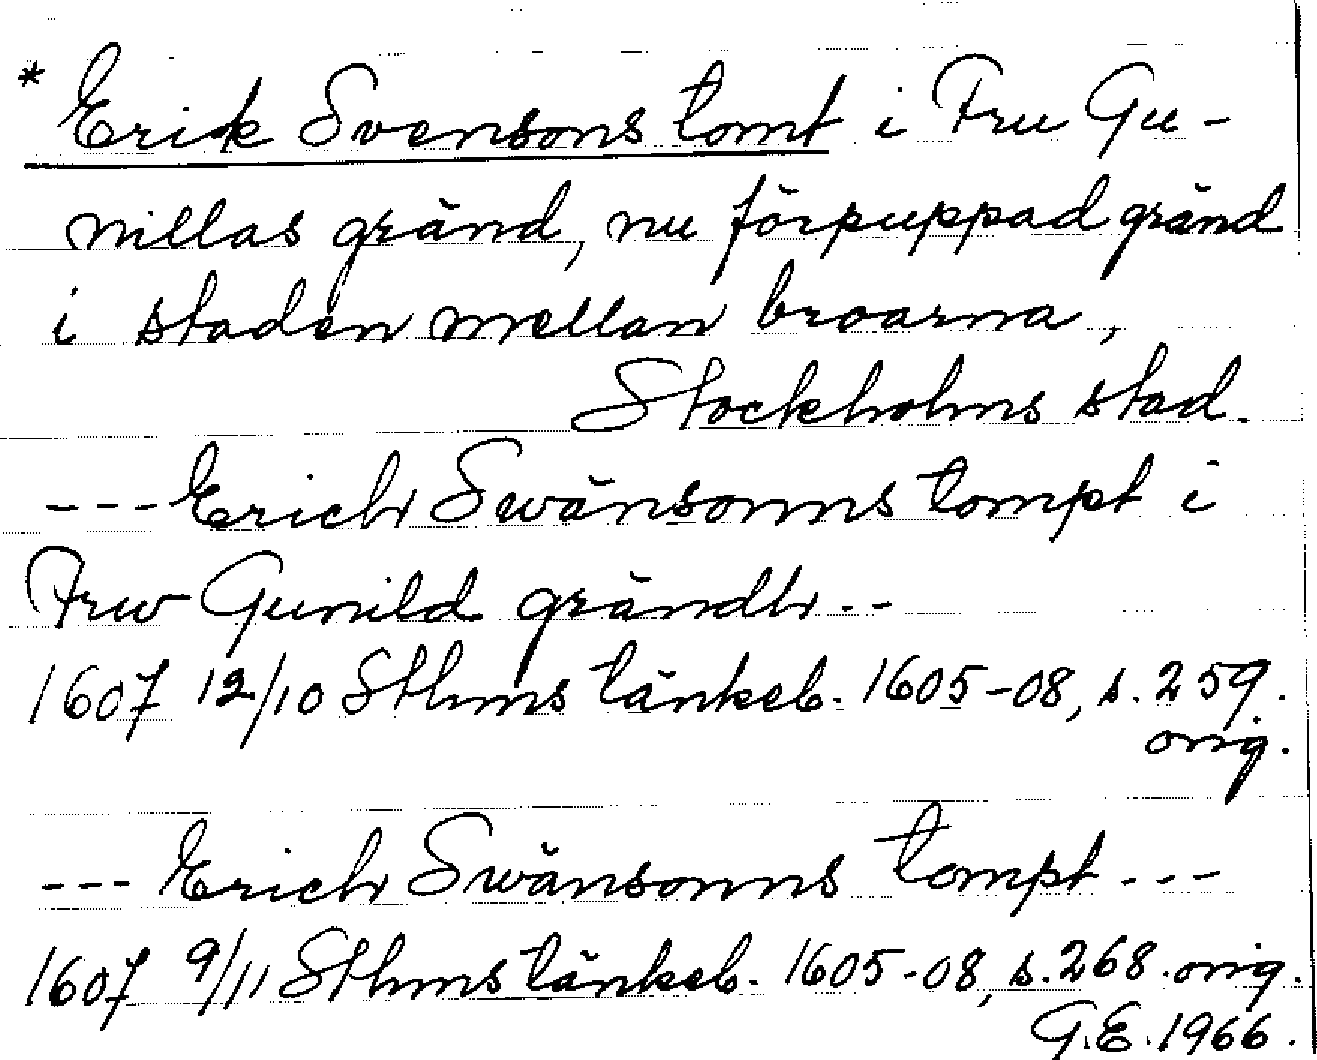 * Erik Svensons tomt i Fru Gu-
nillas gränd, nu förpuppad gränd
i staden mellan broarna,
Stockholms stad.
---Erich Swänsonns tompt i
Frw Gunild grändh--
1607 12/10 Sthms tänkeb. 1605-08, s. 259.
orig.
--- Erich Swänsonns tompt ---
1607 9/11 Sthms tänkeb. 1605-08, s. 268. orig.
G.E. 1966.